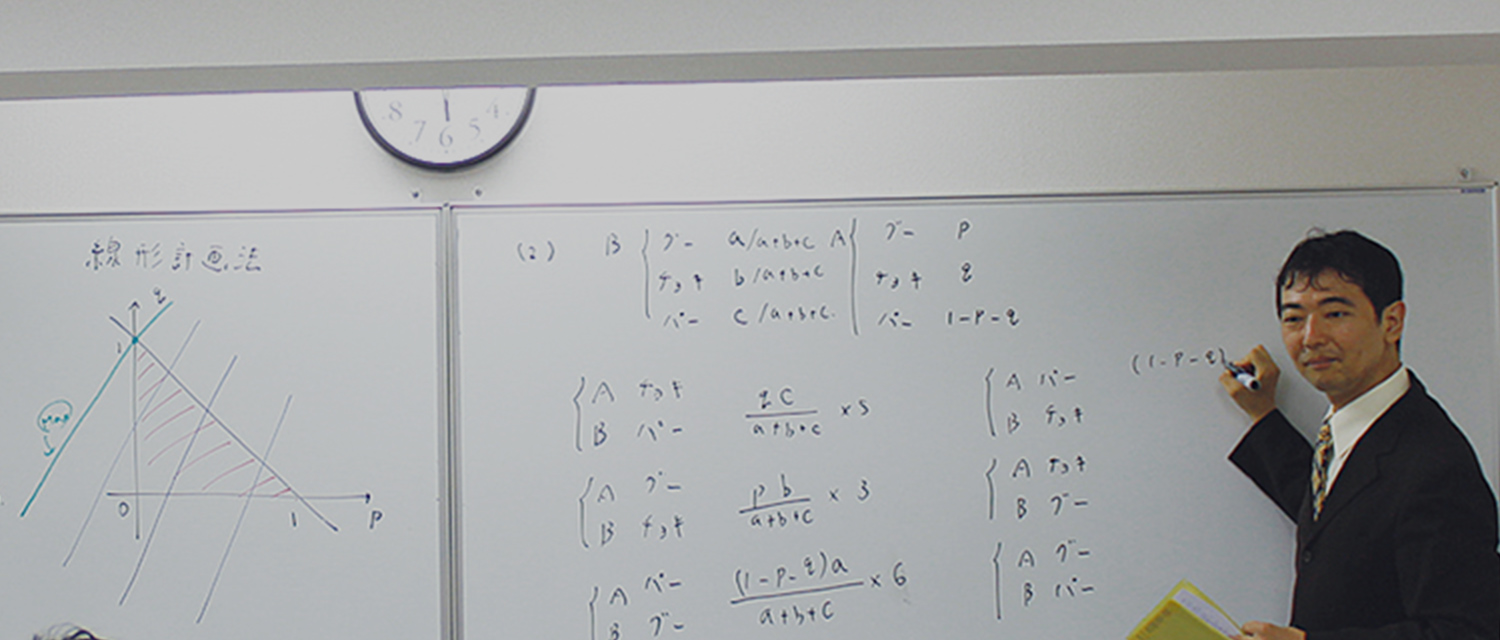 8 7 6 5 4
線形計画法
q
1
max
0
1
P
(2)
B { グー a/a+b+c
チョキ b/a+b+c
パー c/a+b+c.
A { グー P
チョキ q
パー 1-P-q
{ A チョキ
B パー
qc/a+b+c ×5
{ A グー
B チョキ
pb/a+b+c × 3
{ A パー
B グー
(1-P-q)a/a+b+c × 6
{ A パー
B チョキ
(1-P-q)
{ A チョキ
B グー
{ A グー
B パー